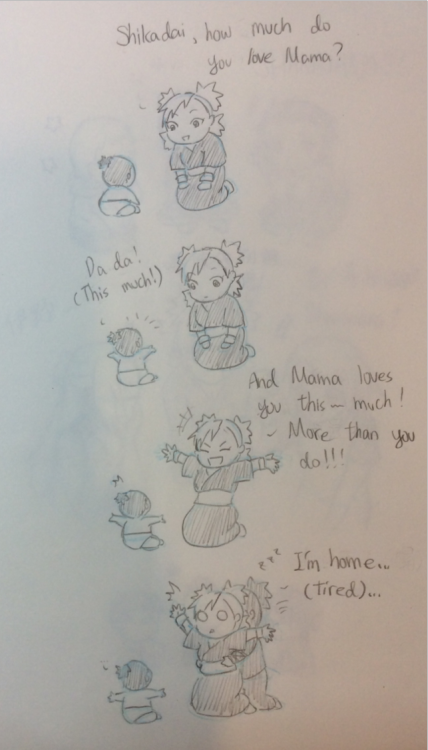 Shikadai, how much do
you love Mama?
Da da!
(This much!)
And Mama loves
you this~ much!
~ More than you
do!!!
zzz I'm home...
(Tired)...